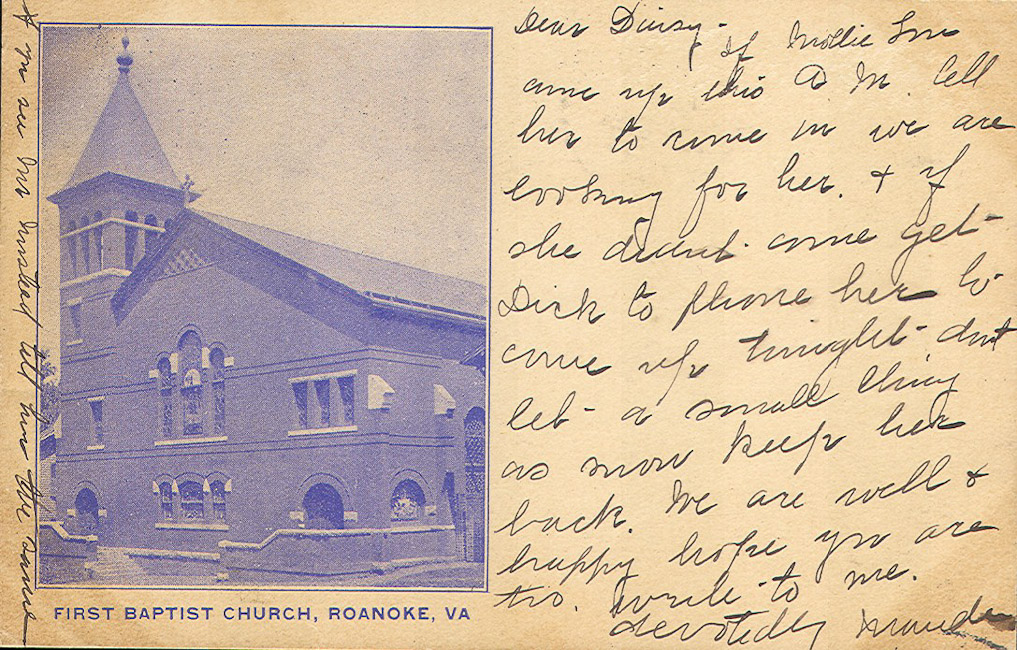 Dear Daisy - if Mollie Lou
came up this A M. tell
her to come in we are
looking for her. & if
she didn't come get
Dick to phone her to
come up tonight - don't
let a small thing
as snow keep her
back. We are well &
happy hope you are
too. write to me.
devotedly Maude
If you see Mr tell him the same
FIRST BAPTIST CHURCH, ROANOKE, VA